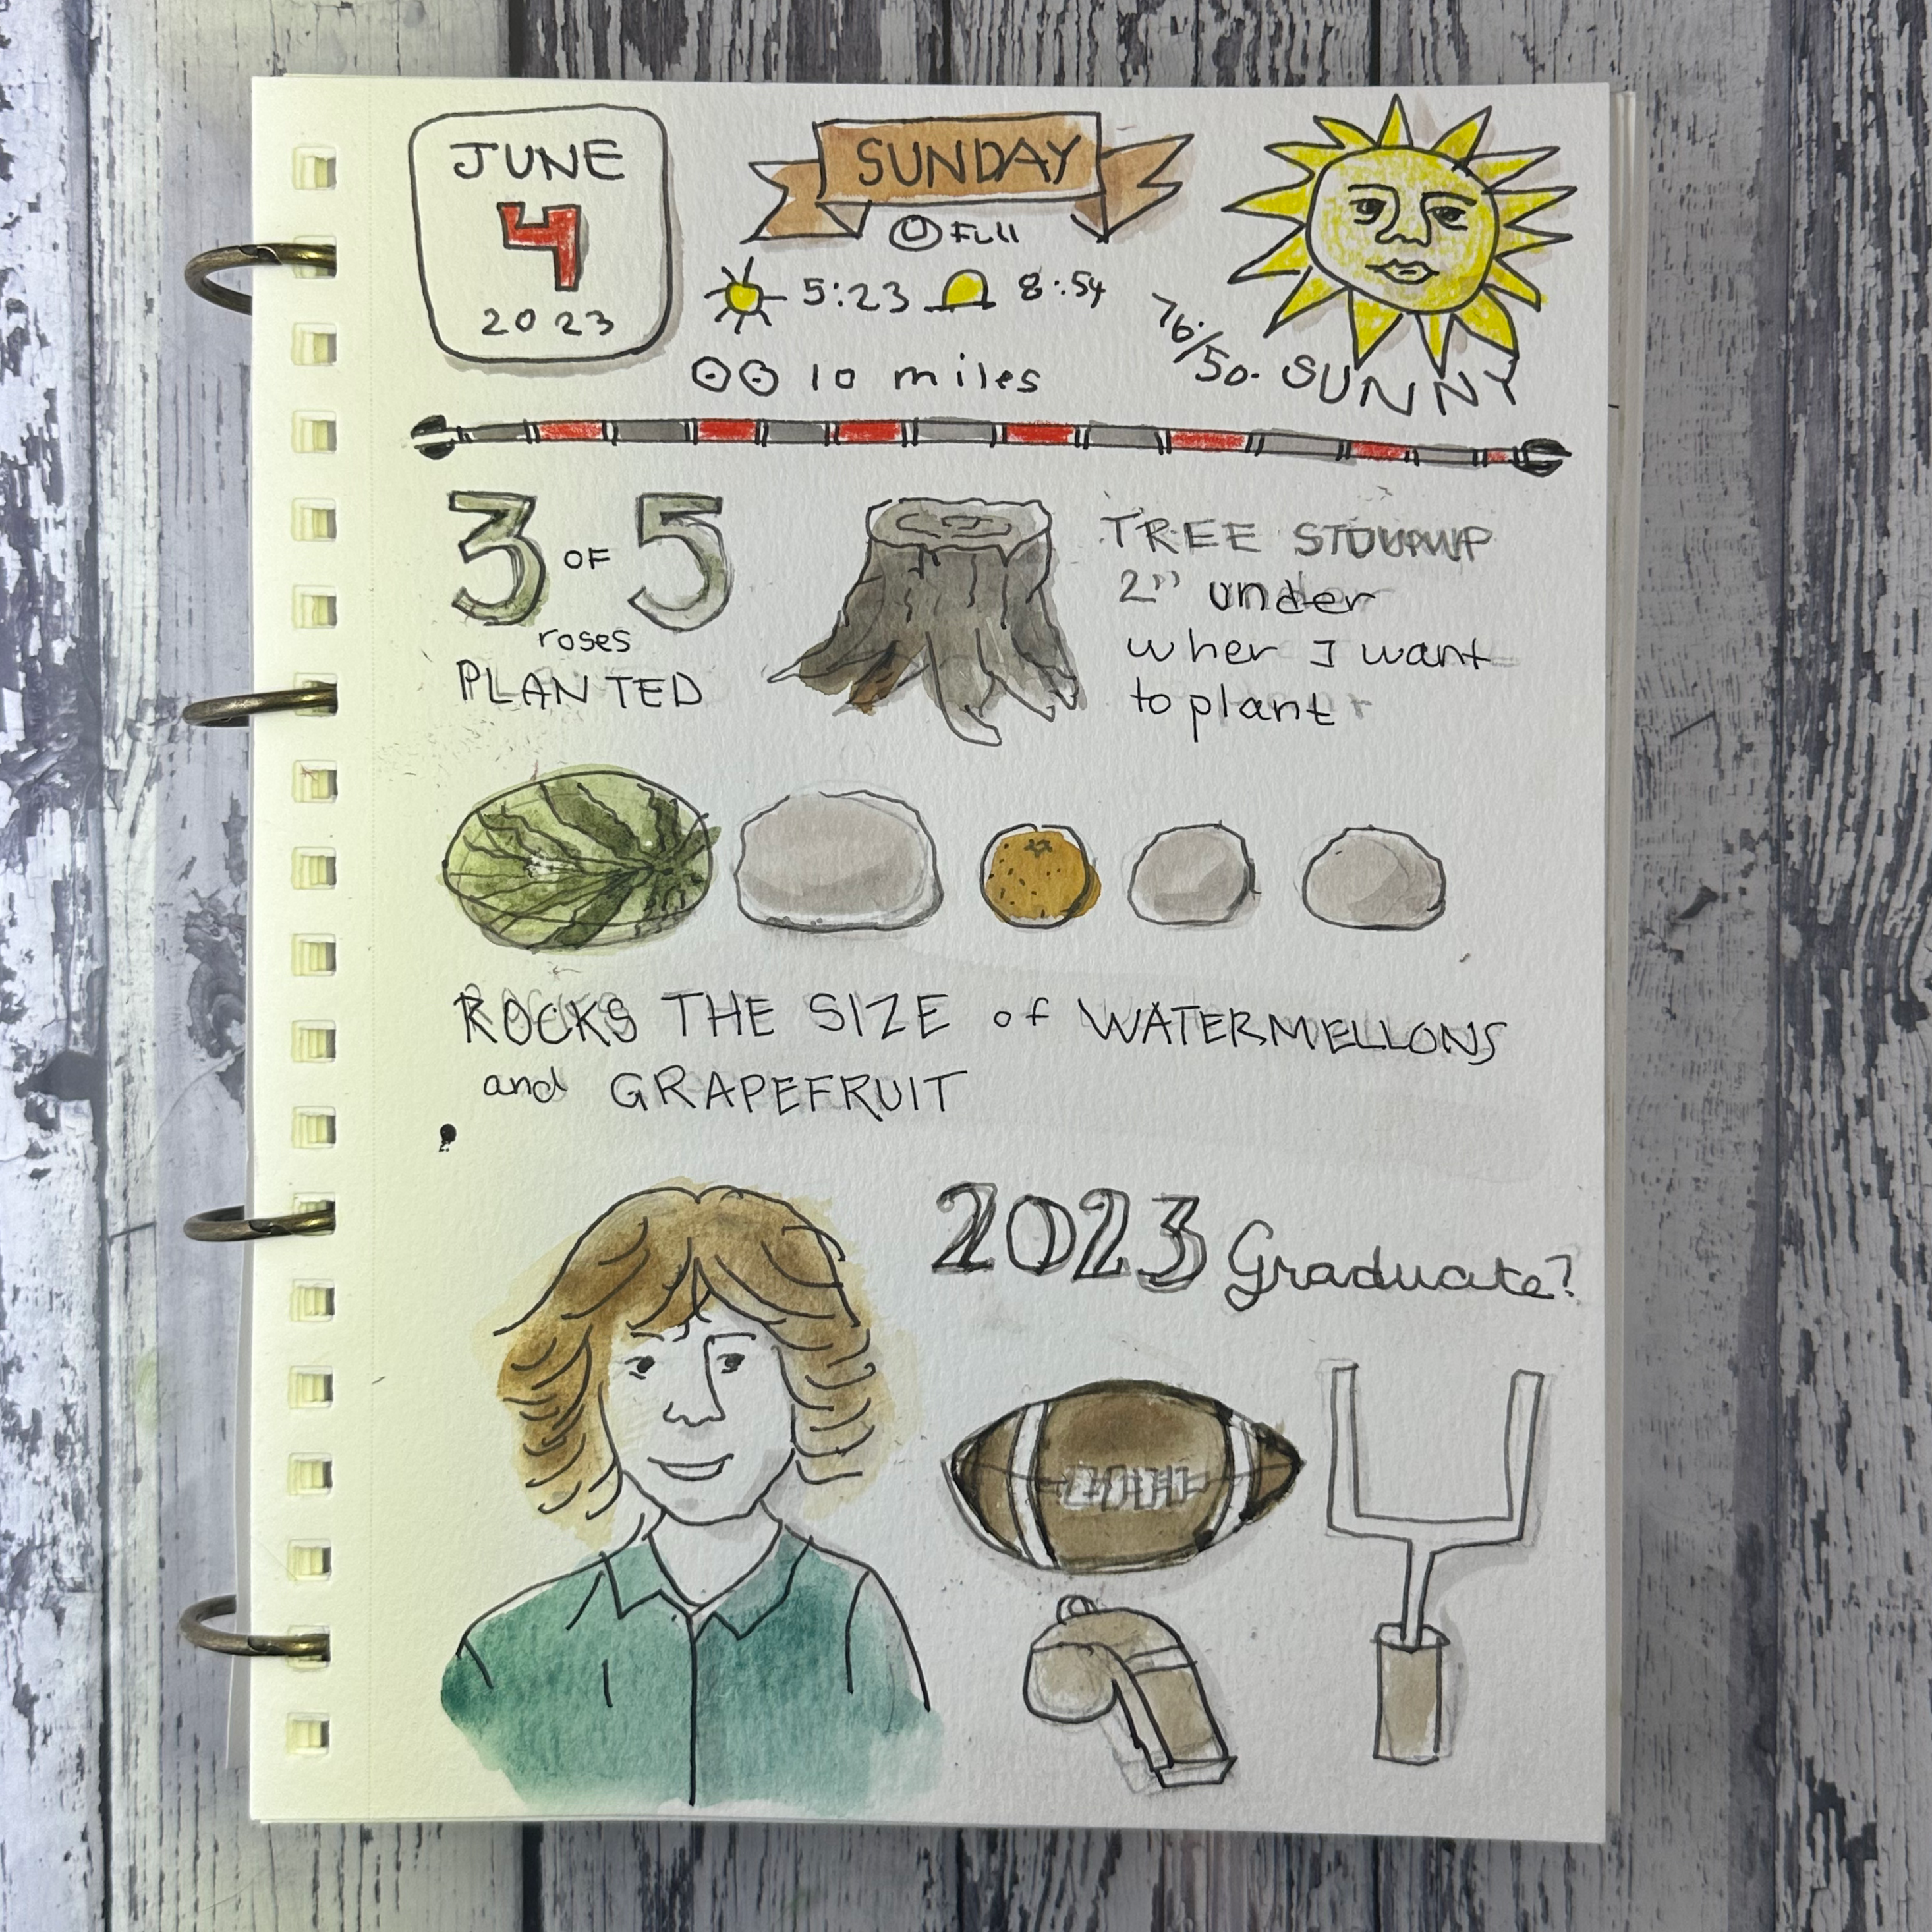 JUNE
4
2023
SUNDAY
Full
5:23 8:54
10 miles
76/50. SUNNY
3 OF 5
roses
PLANTED
TREE
2" under
wher I want
to plant
ROCKS THE SIZE of WATERMELLONS
and GRAPEFRUIT
2023 Graduate?